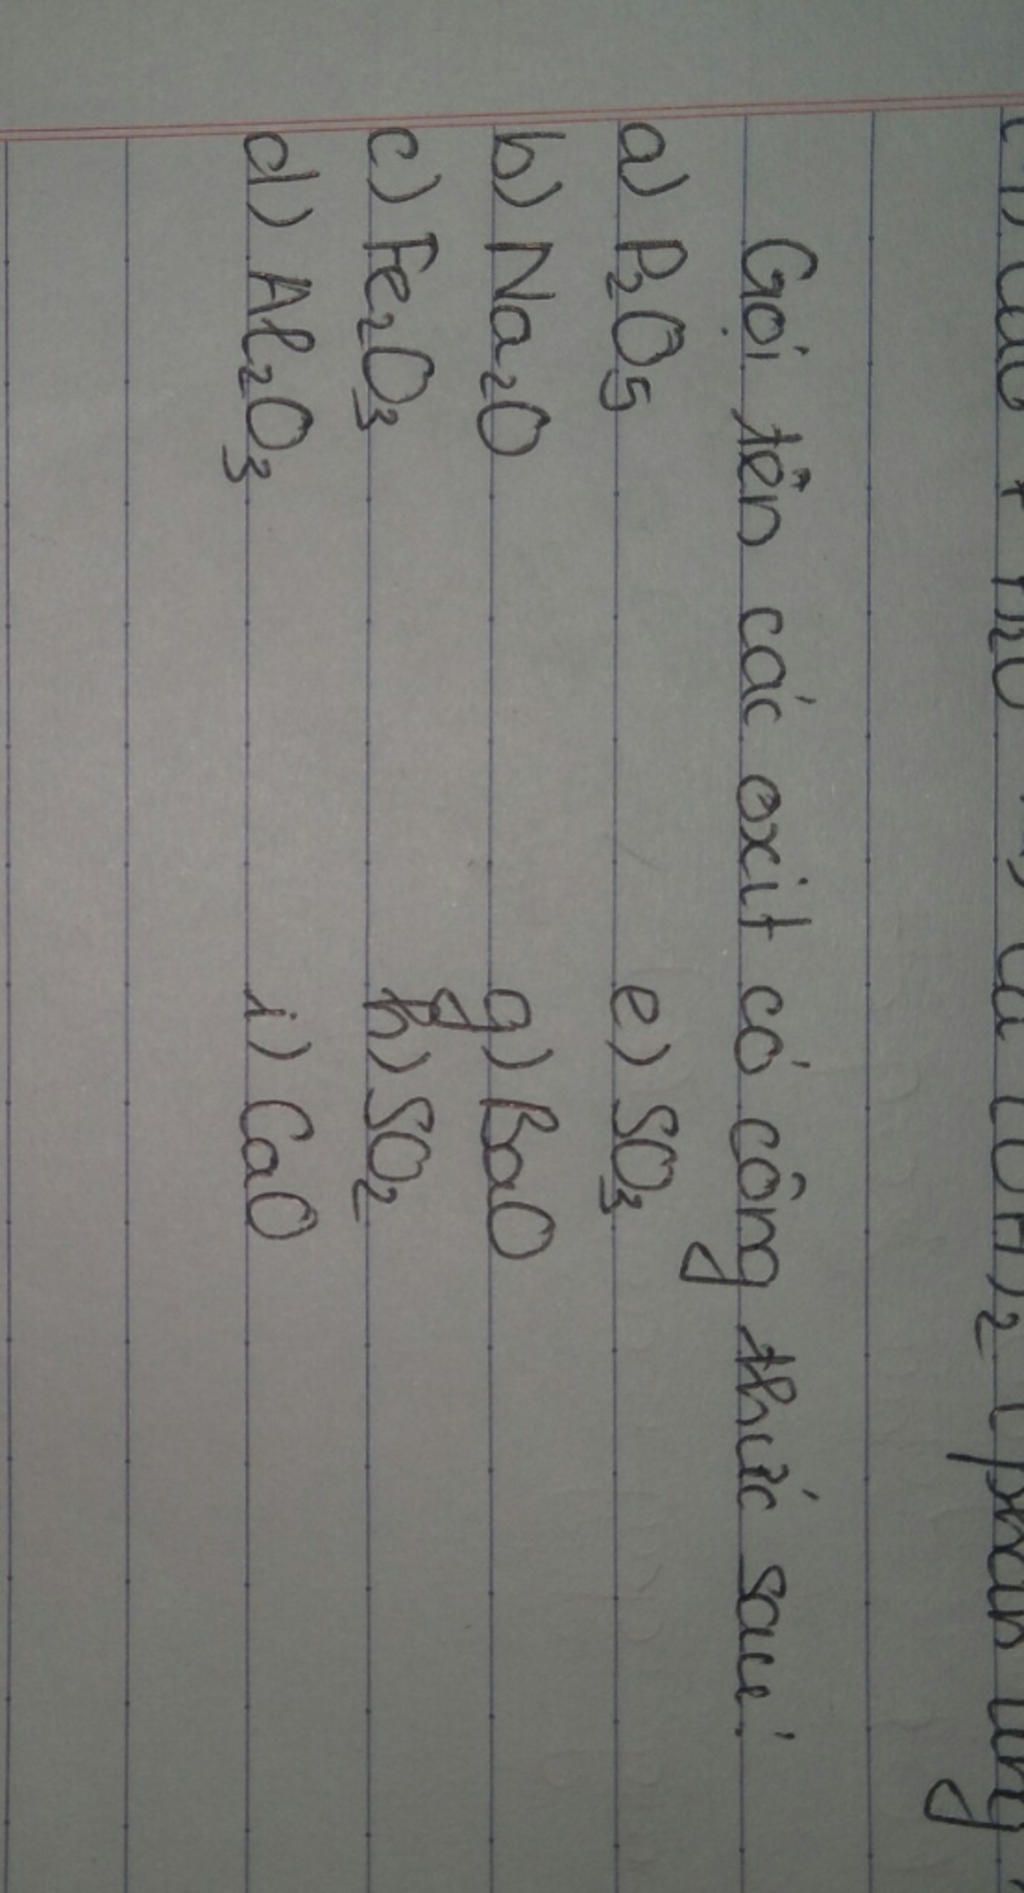 Gọi tên các oxit có công thức sau:
a) P₂O₅ e) SO₃
b) Na₂O g) BaO
c) Fe₂O₃ h) SO₂
d) Al₂O₃ i) CaO